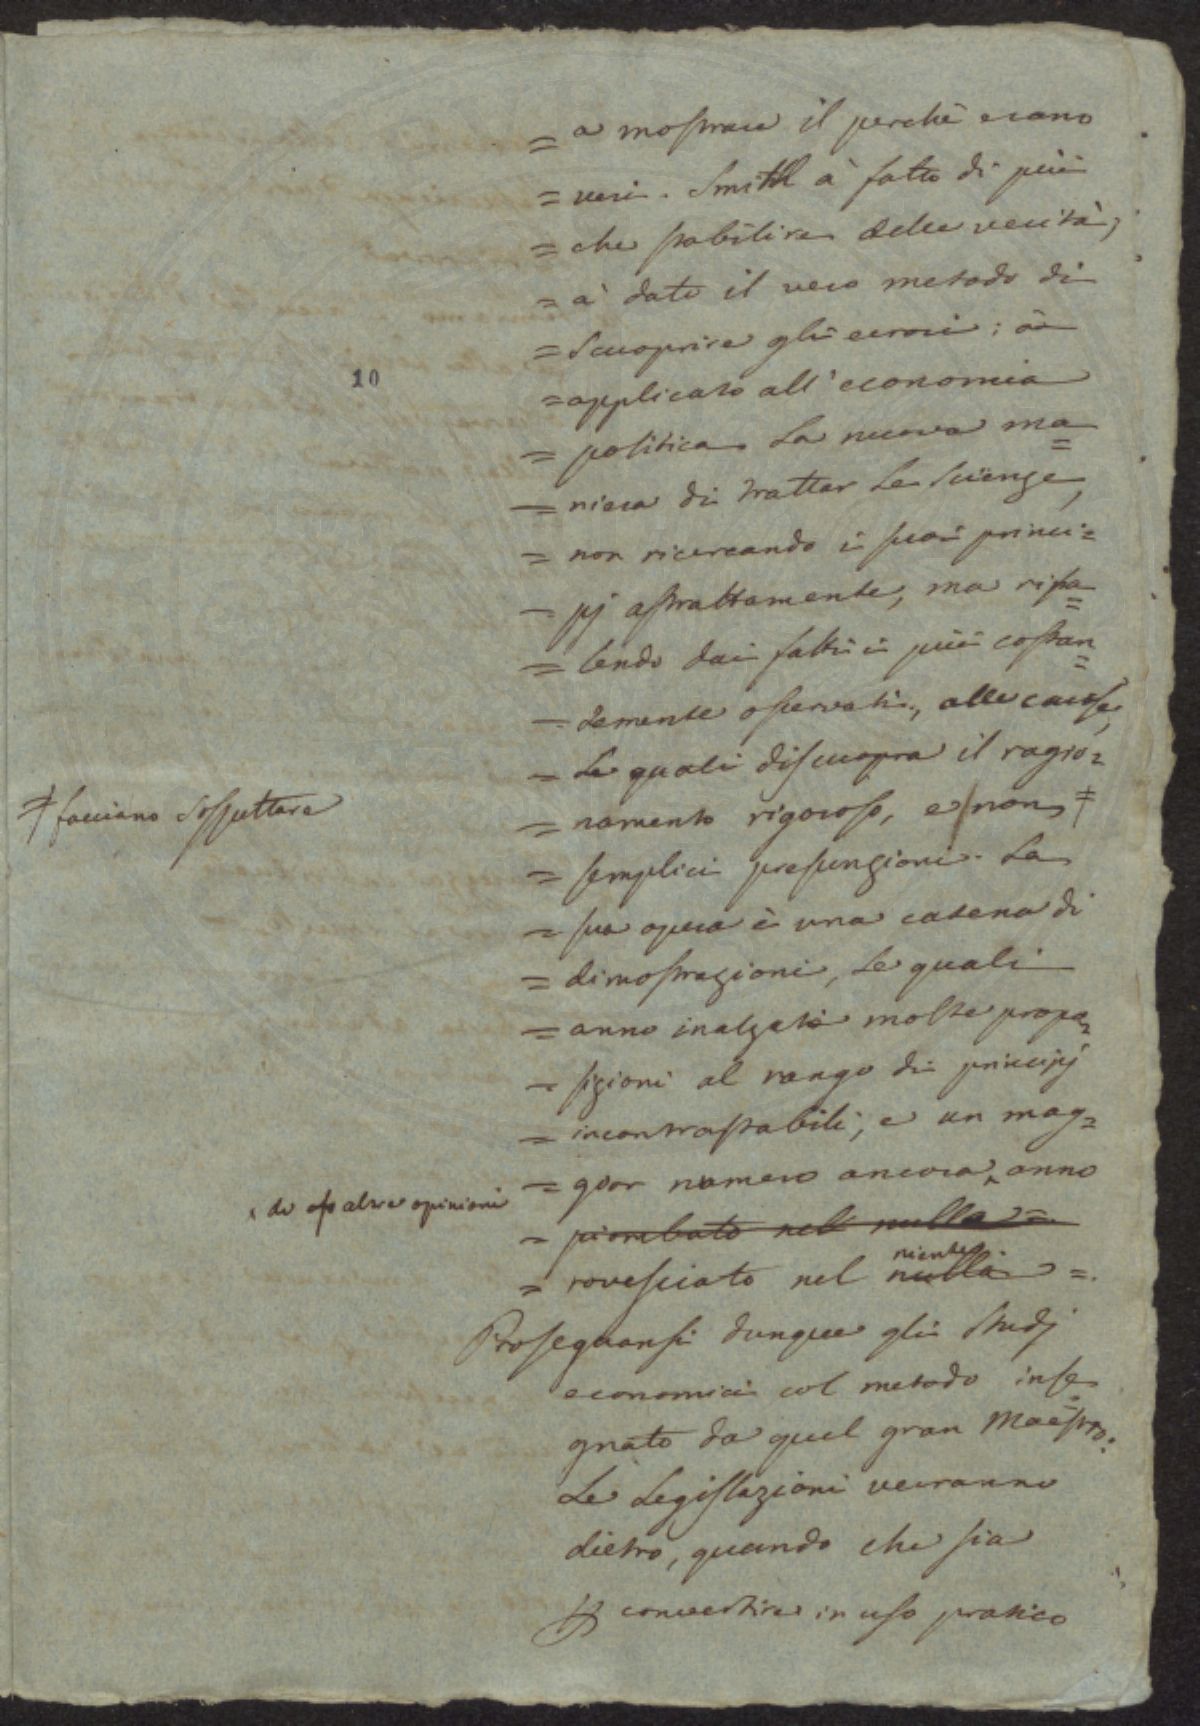 = a mostrare il perchè erano
= veri. Smith à fatto di più
= che stabilire delle verità;
= à dato il vero metodo di
= scuoprire gli errori: à
10
= applicato all'economia
= politica la nuova ma=
= niera di trattar le scienze,
= non ricercando i suoi princi=
= pj astrattamente, ma risa=
= lendo dai fatti i più costan=
= temente osservati, alle cause,
= le quali discuopra il ragio=
ǂ facciano sospettare
= namento rigoroso, e non ǂ
= semplici presunzioni. La
= sua opera è una catena di
= dimostrazioni, le quali
= anno inalzato molte propo=
= sizioni al rango di principj
= incontrastabili; e un mag=
= gior numero ancora ^ anno
^ di altre opinioni
= piombato nel nulla =.
= rovesciato nel nulla =.
niente
Proseguansi dunque gli studj
economici col metodo inse=
gnato da quel gran Maestro:
Le Legislazioni verranno
dietro, quando che sia
convertire in uso pratico